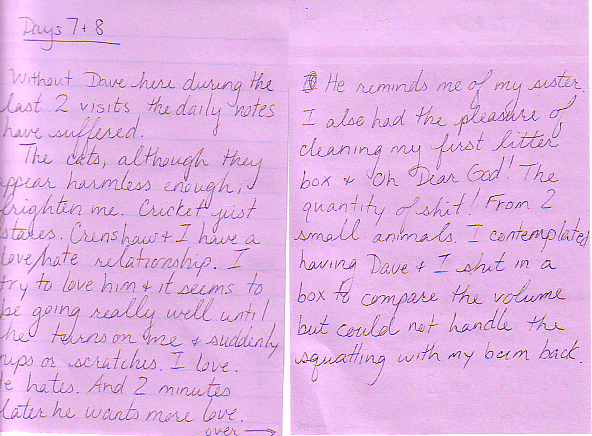 Days 7 + 8
Without Dave here during the
last 2 visits the daily notes
have suffered.
The cats, although they
appear harmless enough,
frighten me. Cricket just
stares. Crenshaw + I have a
love/hate relationship. I
try to love him + it seems to
be going really well until
he turns on me + suddenly
nips or scratches. I love.
He hates. And 2 minutes
later he wants more love.
over →
He reminds me of my sister.
I also had the pleasure of
cleaning my first litter
box + Oh Dear God! The
quantity of shit! From 2
small animals. I contemplated
having Dave + I shit in a
box to compare the volume
but could not handle the
squatting with my bum back.